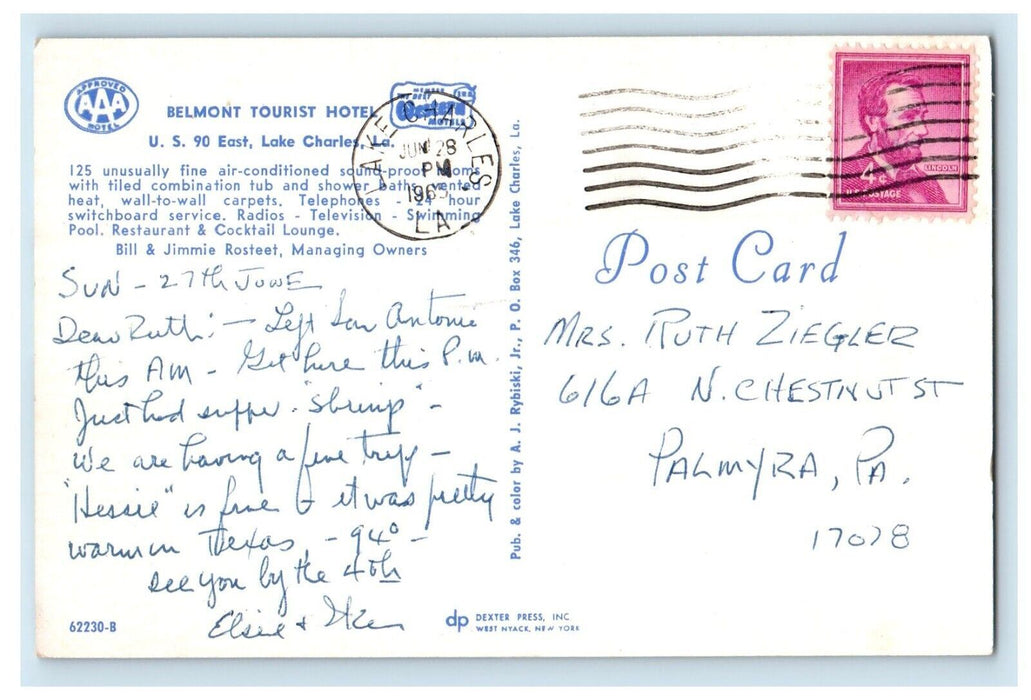 APPROVED
AAA
MOTEL
BELMONT TOURIST HOTEL
MEMBER
BEST
Western
MOTELS
U. S. 90 East, Lake Charles, La.
125 unusually fine air-conditioned sound-proof rooms
with tiled combination tub and shower baths, vented
heat, wall-to-wall carpets. Telephones - 24 hour
switchboard service. Radios - Television - Swimming
Pool. Restaurant & Cocktail Lounge.
Bill & Jimmie Rosteet, Managing Owners
LAKE CHARLES
JUN 28
PM
1965
LA
SUN - 27th JUNE
Dear Ruth: - Left San Antonio
this AM - Get here this P.M.
Just had supper. "Shrimp" -
We are having a fine trip -
"Hessie" is fine & it was pretty
warm in Texas, - 94° -
see you by the 4th
Elsie +
62230-B
Pub. & color by A. J. Rybiski, Jr., P. O. Box 346, Lake Charles, La.
dp DEXTER PRESS, INC.
WEST NYACK, NEW YORK
4¢
LINCOLN
POSTAGE
Post Card
MRS. RUTH ZIEGLER
616A N. CHESTNUT ST
PALMYRA, PA.
17078